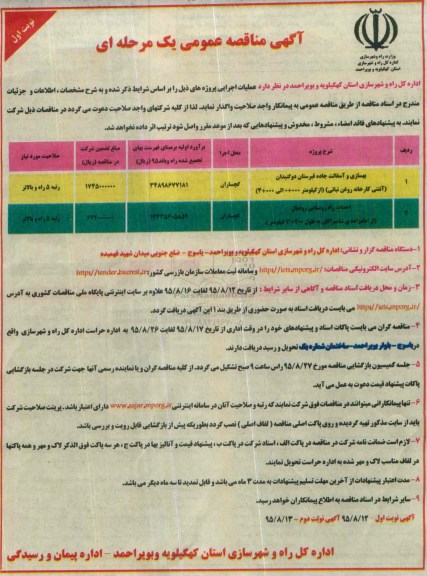 نوبت اول
آگهی مناقصه عمومی یک مرحله ای
وزارت راه و شهرسازی
اداره کل راه و شهرسازی
استان کهگیلویه و بویراحمد
اداره کل راه و شهرسازی استان کهگیلویه وبویراحمد در نظر دارد عملیات اجرایی پروژه های ذیل را بر اساس شرایط ذکر شده و به شرح مشخصات ، اطلاعات و جزئیات
مندرج در اسناد مناقصه از طریق مناقصه عمومی به پیمانکار واجد صلاحیت واگذار نماید. لذا از کلیه شرکتهای واجد صلاحیت دعوت می گردد در مناقصات ذیل شرکت
نمایند. به پیشنهادهای فاقد امضاء ، مشروط ، مخدوش و پیشنهادهایی که بعد از موعد مقرر واصل شود ترتیب اثر داده نخواهد شد.
ردیف شرح پروژه محل اجرا برآورد اولیه برمبنای فهرست بهای تجمیع شده راه وباند۹۵ (ریال) مبلغ تضمین شرکت در مناقصه (ریال) صلاحیت مورد نیاز
۱ بهسازی و آسفالت جاده قبرستان دوگنبدان گچساران ۳۴۸۹۸۶۷۷۱۸۱ ۱۷۴۵۰۰۰۰۰۰ رتبه ۵ راه و بالاتر
۲ احداث راه روستایی گچساران رتبه ۵ راه و بالاتر
۱-دستگاه مناقصه گزار و نشانی: اداره کل راه و شهرسازی استان کهگیلویه وبویراحمد- یاسوج - ضلع جنوبی میدان شهید فهمیده
۲- آدرس سایت الکترونیکی مناقصات: http://iets.mporg.ir/ وسامانه ثبت معاملات سازمان بازرسی کشور: http://tender.bazresi.ir/
۳- زمان و محل دریافت اسناد مناقصه و آگاهی از سایر شرایط : از تاریخ ۹۵/۸/۱۲ لغایت ۹۵/۸/۱۶ علاوه بر سایت اینترنتی پایگاه ملی مناقصات کشوری به آدرس
http://iets.mporg.ir/ می بایست دریافت اسناد به صورت حضوری از طریق بند ۱ این آگهی دریافت گردد.
۴- مناقصه گران می بایست پاکات اسناد و پیشنهادهای خود را در وقت اداری از تاریخ ۹۵/۸/۱۷ لغایت ۹۵/۸/۲۶ به اداره حراست اداره کل راه و شهرسازی واقع
در یاسوج - بلوار بویراحمد-ساختمان شماره یک تحویل و رسید دریافت دارند.
۵- جلسه کمیسیون بازگشایی مناقصه مورخ ۹۵/۸/۲۷ راس ساعت ۹ صبح تشکیل می گردد. از کلیه مناقصه گران و یا نماینده رسمی آنها جهت شرکت در جلسه بازگشایی
پاکات پیشنهاد قیمت دعوت به عمل می آید.
۶- تنها پیمانکارانی میتوانند در مناقصات فوق شرکت نمایند که رتبه و صلاحیت آنان در سامانه اینترنتی www.sajar.mporg.ir دارای اعتبار باشد. پرینت صلاحیت شرکت
باید از سایت مذکور تهیه گردیده و روی پاکت اصلی مناقصه ( لفاف اصلی ) نصب گردد بطوریکه پیش از بازگشایی قابل رویت و بررسی باشد.
۷- لازم است ضمانت نامه شرکت در مناقصه در پاکت الف ، اسناد شرکت در پاکت ب ، پیشنهاد قیمت و آنالیز بها در پاکت ج ، هر سه پاکت فوق الذکر لاک و مهر و همه پاکتها
در لفاف مناسب لاک و مهر شده به اداره حراست تحویل نمایند.
۸- مدت اعتبار پیشنهادات از آخرین مهلت تسلیم پیشنهادات به مدت ۳ ماه می باشد و قابل تمدید تا سه ماه دیگر می باشد.
۹- سایر شرایط در اسناد مناقصه به اطلاع پیمانکاران خواهد رسید.
آگهی نوبت اول ۹۵/۸/۱۲ آگهی نوبت دوم - ۹۵/۸/۱۳
اداره کل راه و شهرسازی استان کهگیلویه وبویراحمد - اداره پیمان و رسیدگی